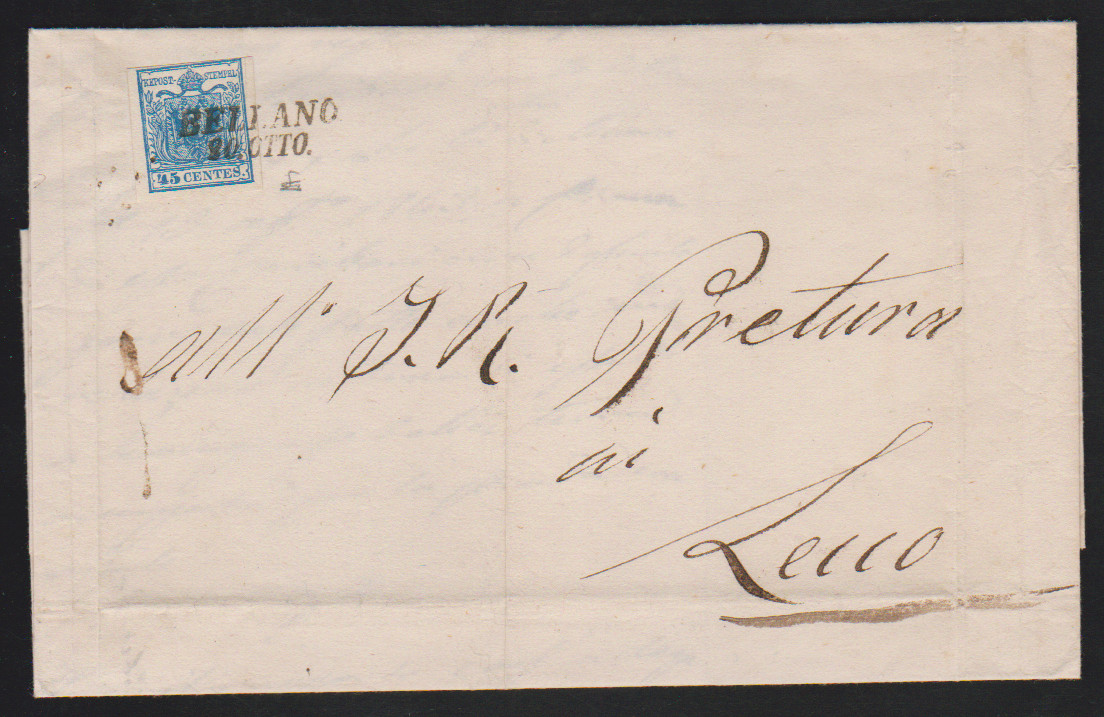 KKPOST-STEMPEL
BELLANO
20. OTTO.
45 CENTES.
all' I. R. Pretura
di
Lecco